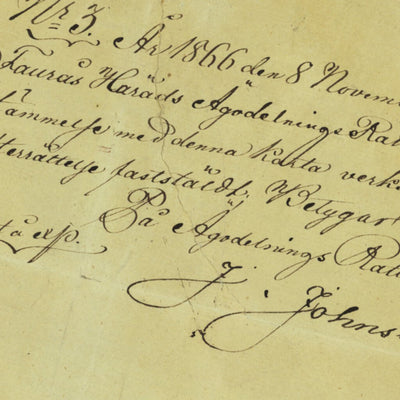 Nr 3. År 1866 den 8 Novem
Faurås Härads Ägodelnings Rät
tämmelse med denna karta verk
terrättelse faststäldt; Betygar
På Ägodelnings Rät
å exp.
J. Johns